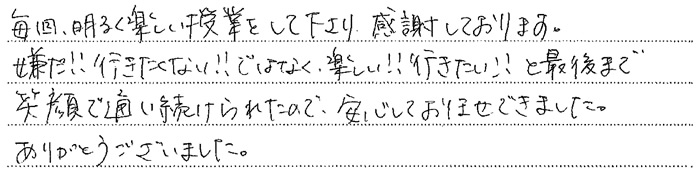 毎回、明るく楽しい授業をして下さり、感謝しております。
嫌だ!!行きたくない!!ではなく、楽しい!!行きたい!!と最後まで
笑顔で通い続けられたので、安心してお任せできました。
ありがとうございました。